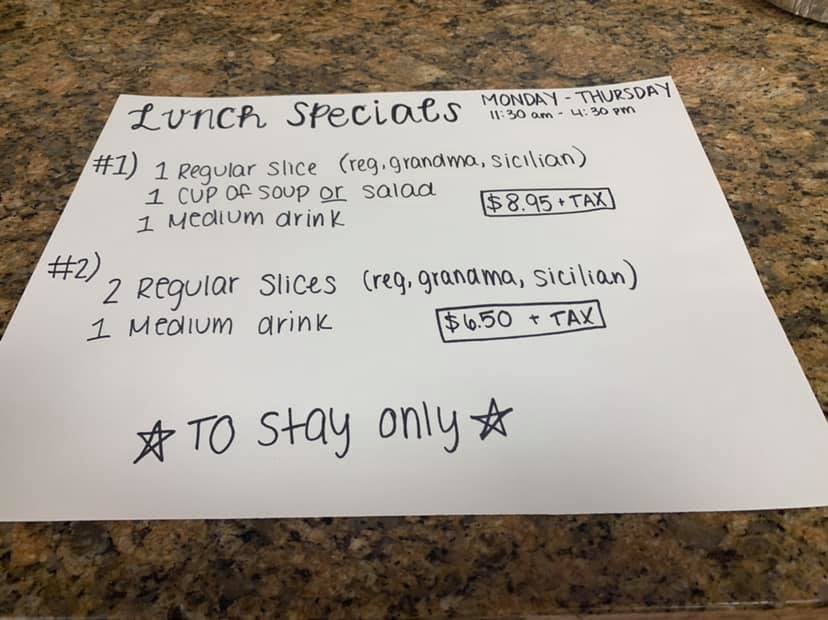 Lunch Specials MONDAY - THURSDAY
11:30 am - 4:30 pm
#1) 1 Regular slice (reg, grandma, sicilian)
1 cup of soup or salad
$8.95 + TAX
1 Medium drink
#2) 2 Regular slices (reg, grandma, sicilian)
1 Medium drink
$6.50 + TAX
☆ TO Stay only ☆